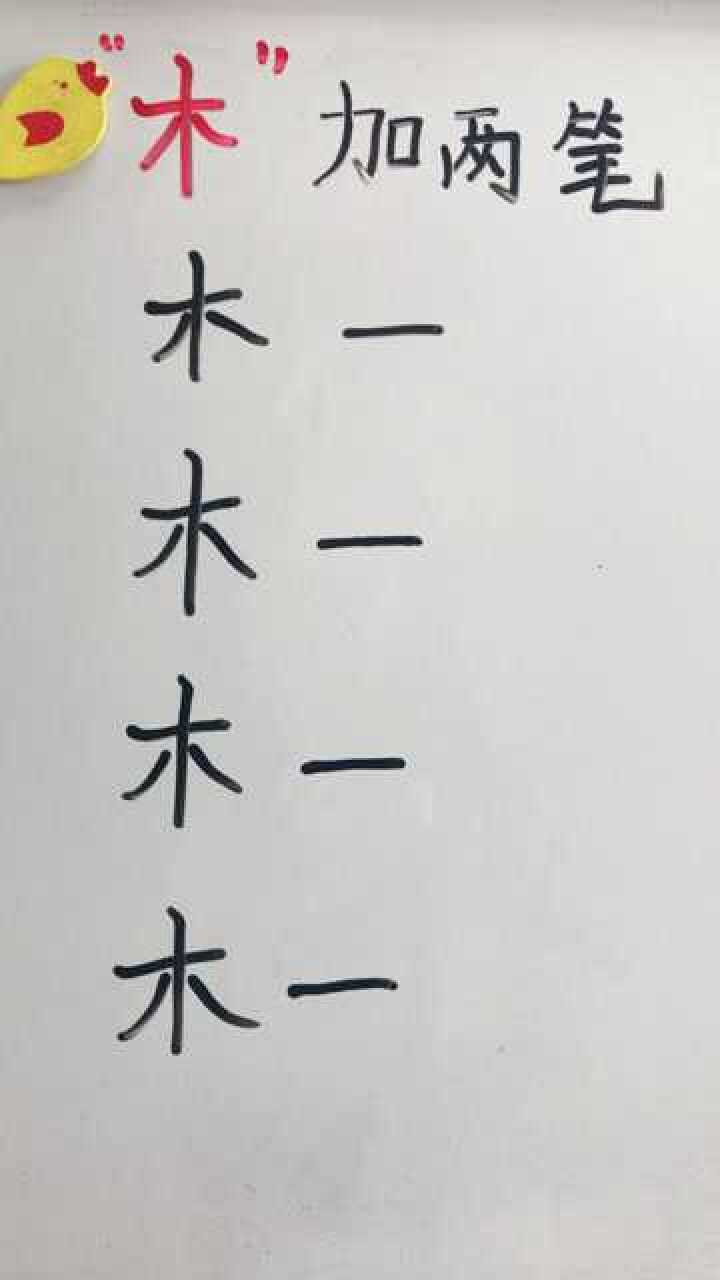 “木”加两笔
木 一
木 一
木 一
木 一